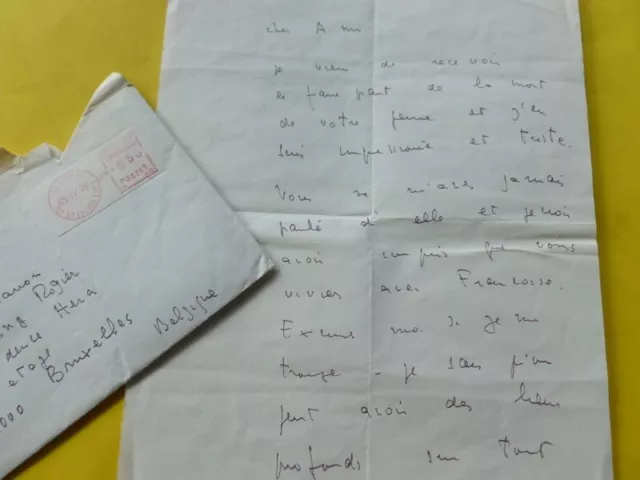 cher Ami
je viens de recevoir
le faire part de la mort
de votre femme et j'en
suis impressionné et triste.
Vous ne m'avez jamais
parlé d'elle et je crois
avoir compris que vous
viviez avec Francoise.
Excusez moi si je me
trompe - je sais qu'on
peut avoir des liens
profonds sur tout
POSTES
Rogier
Hera
etage
000 Bruxelles
Belgique